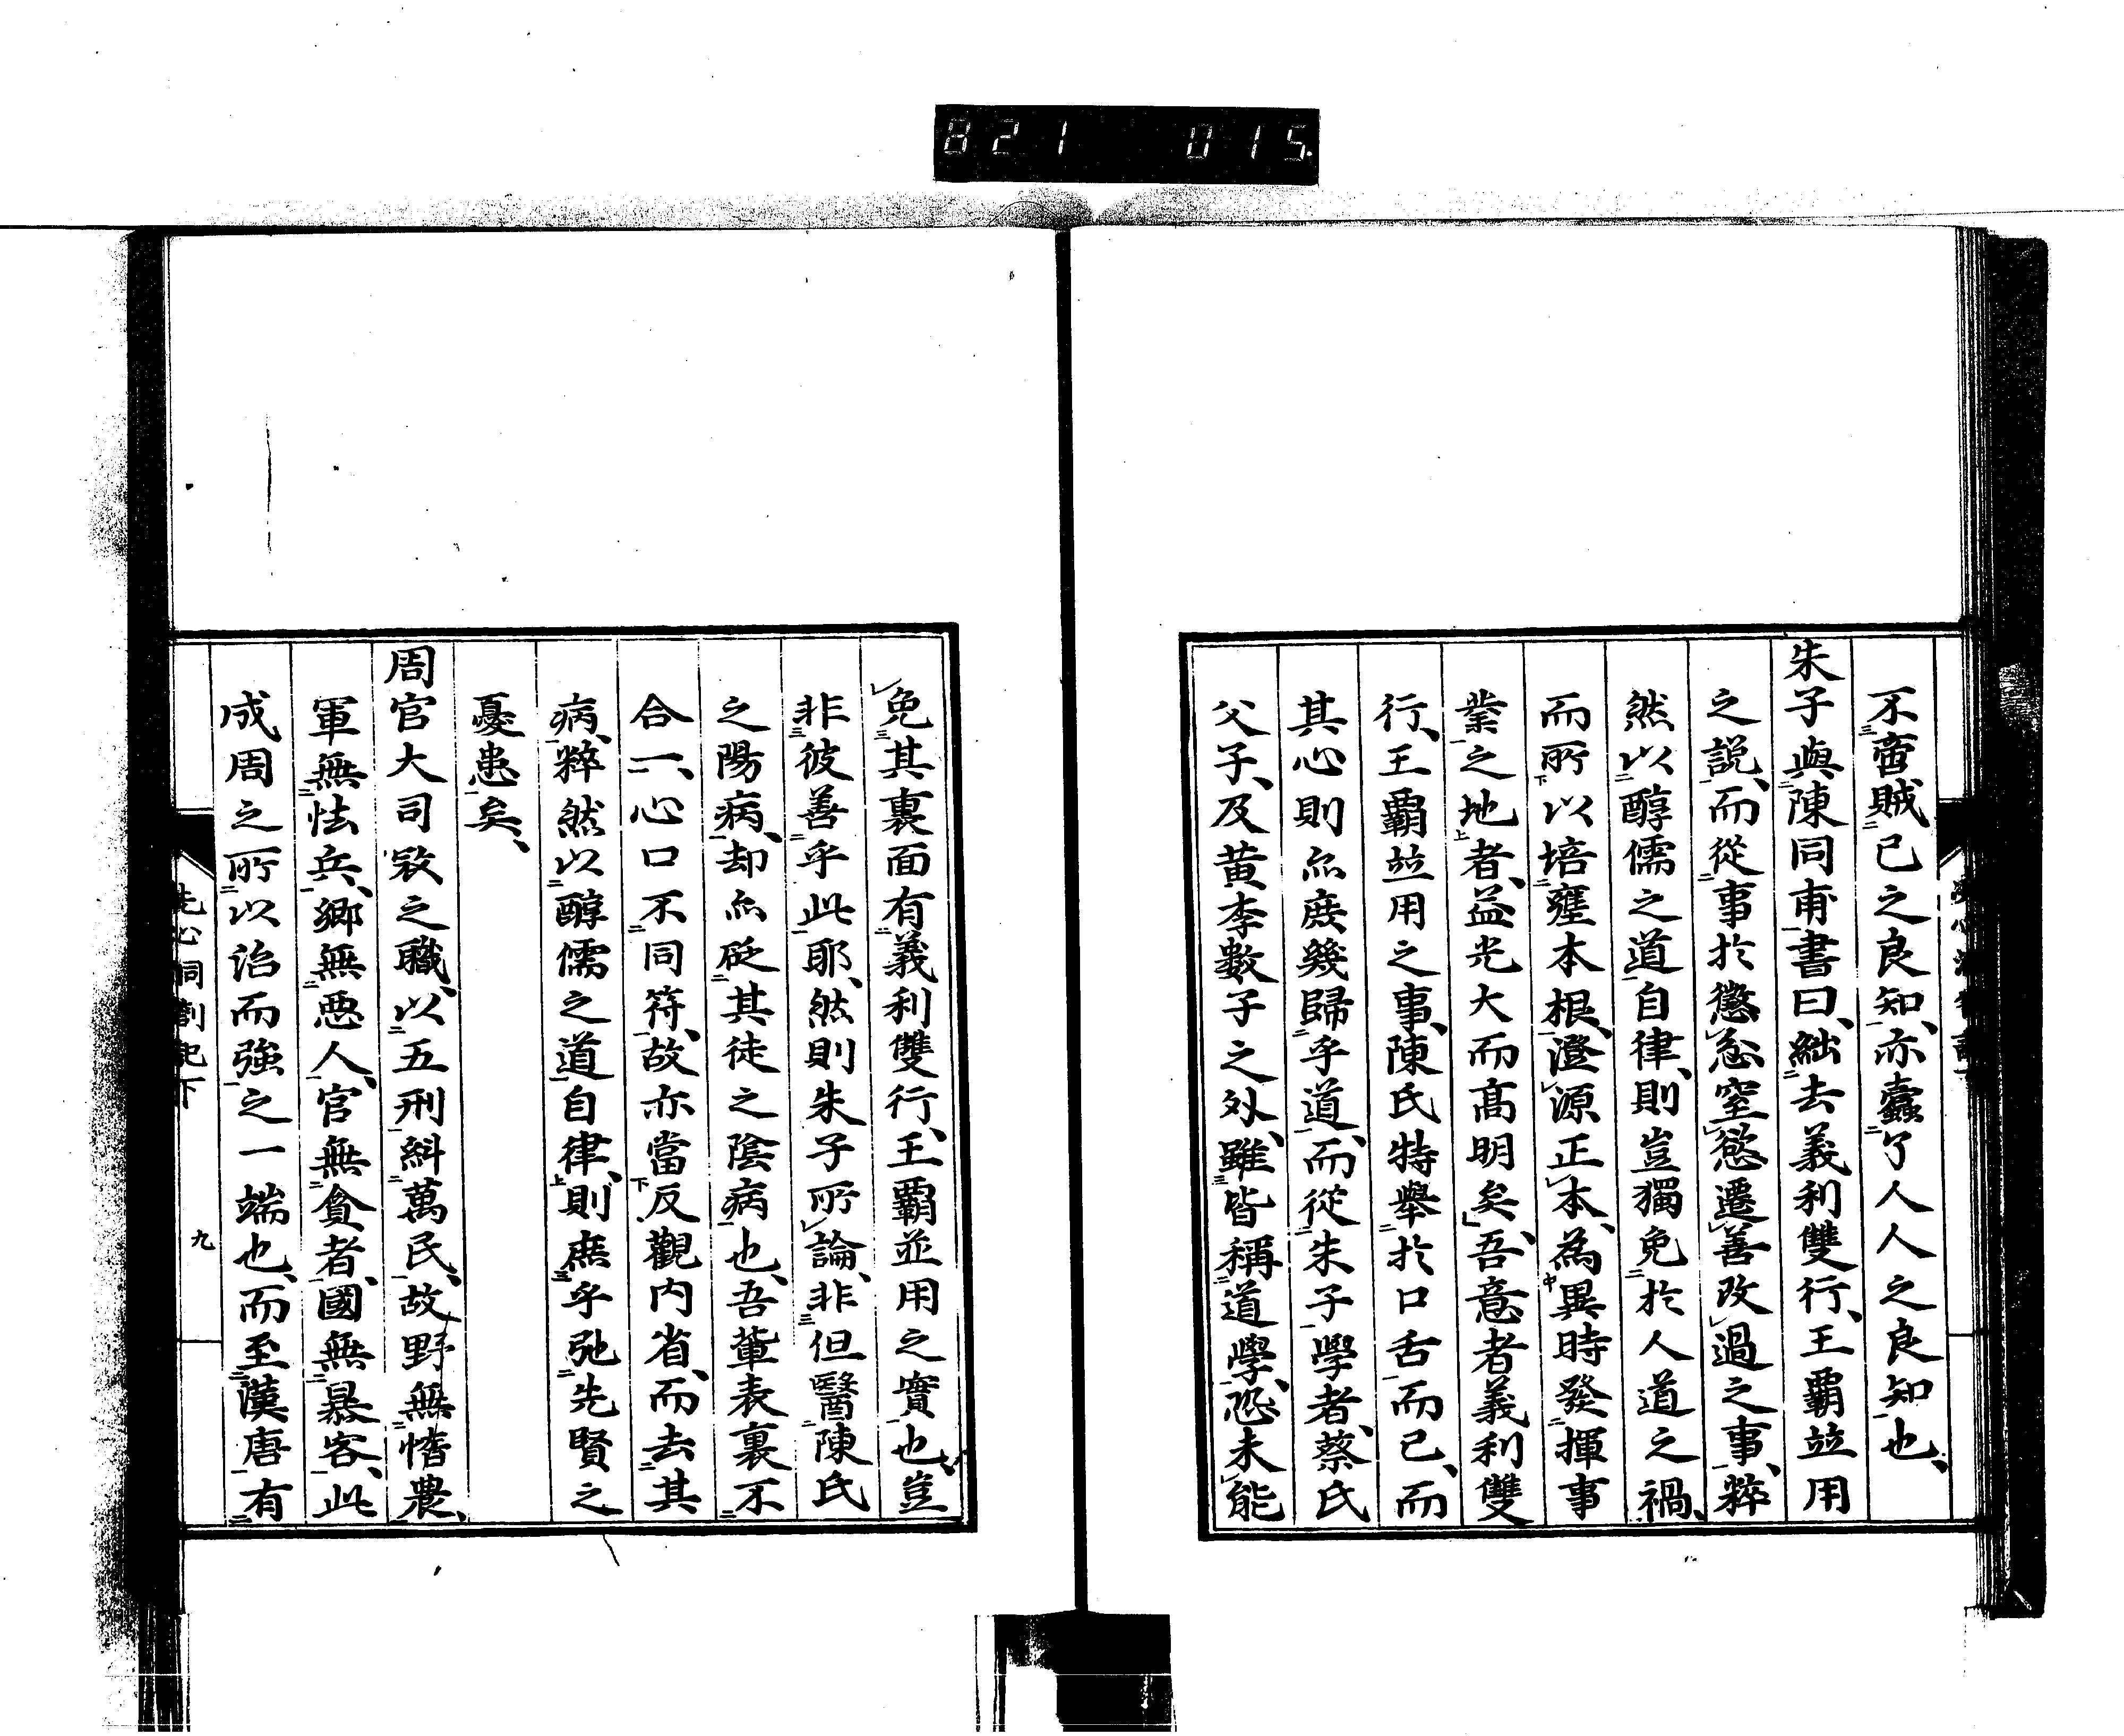 821 015.
不啻賊己之良知、亦蠹了人人之良知也、
朱子與陳同甫書曰、絀去義利雙行、王覇竝用
之説、而從事於懲忿窒慾遷善改過之事、粹
然以醇儒之道自律、則豈獨免於人道之禍、
而所以培壅本根、澄源正本、為異時發揮事
業之地者、益光大而高明矣、吾意者義利雙
行、王覇竝用之事、陳氏特舉於口舌而已、而
其心則亦庶幾歸乎道、而從朱子學者、蔡氏
父子、及黄李數子之外、雖皆稱道學、恐未能
免其裏面有義利雙行、王覇並用之實也、豈
非彼善乎此耶、然則朱子所論、非但醫陳氏
之陽病、却亦砭其徒之陰病也、吾輩表裏不
合一、心口不同符、故亦當反觀内省、而去其
病、粹然以醇儒之道自律、則庶乎弛先賢之
憂患矣、
周官大司寇之職、以五刑糾萬民、故野無惰農、
軍無怯兵、鄉無惡人、官無貪者、國無暴客、此
成周之所以治而強之一端也、而至漢唐有
洗心洞劄記下
九